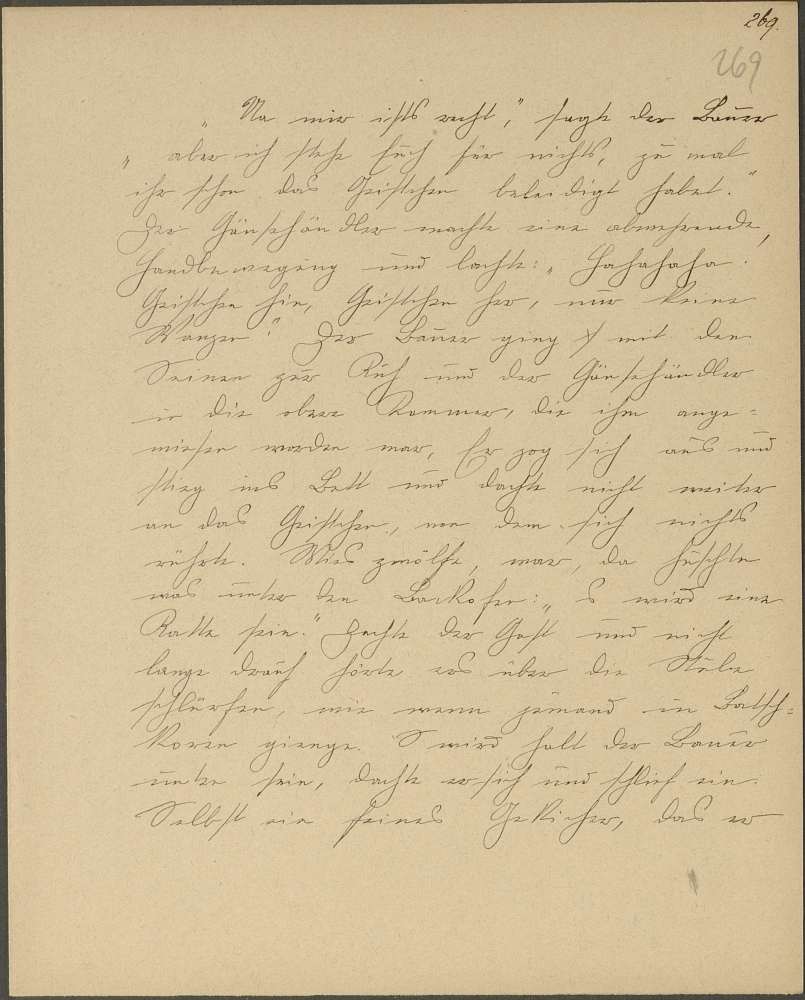 269.
269
„Na mir ists recht," sagte der Bauer
„aber ich stehe Euch für nichts, zu mal
ihr schon das Geistchen beleidigt habet."
Der Gänsehändler machte eine abwehrende,
Handbewegung und lachte: „Hahahaha.
Geistchen hin, Geistchen her, nur keine
Wanzen!" Der Bauer ging mit den
Seinen zur Ruh und der Gänsehändler
in die obere Kammer, die ihm ange=
wiesen worden war, Er zog sich aus und
stieg ins Bett und dachte nicht weiter
an das Geistchen, von dem sich nichts
rührte. Wies zwölfe, war, da huschte
was unter den Backofen: „s wird eine
Ratte sein." Dachte der Gast und nicht
lange drauf hörte ers über die Stube
schlürfen, wie wenn jemand in Batsch=
koren gienge. S wird halt der Bauer
unten sein, dachte er sich und schlief ein.
Selbst ein feines Gekicher, das er